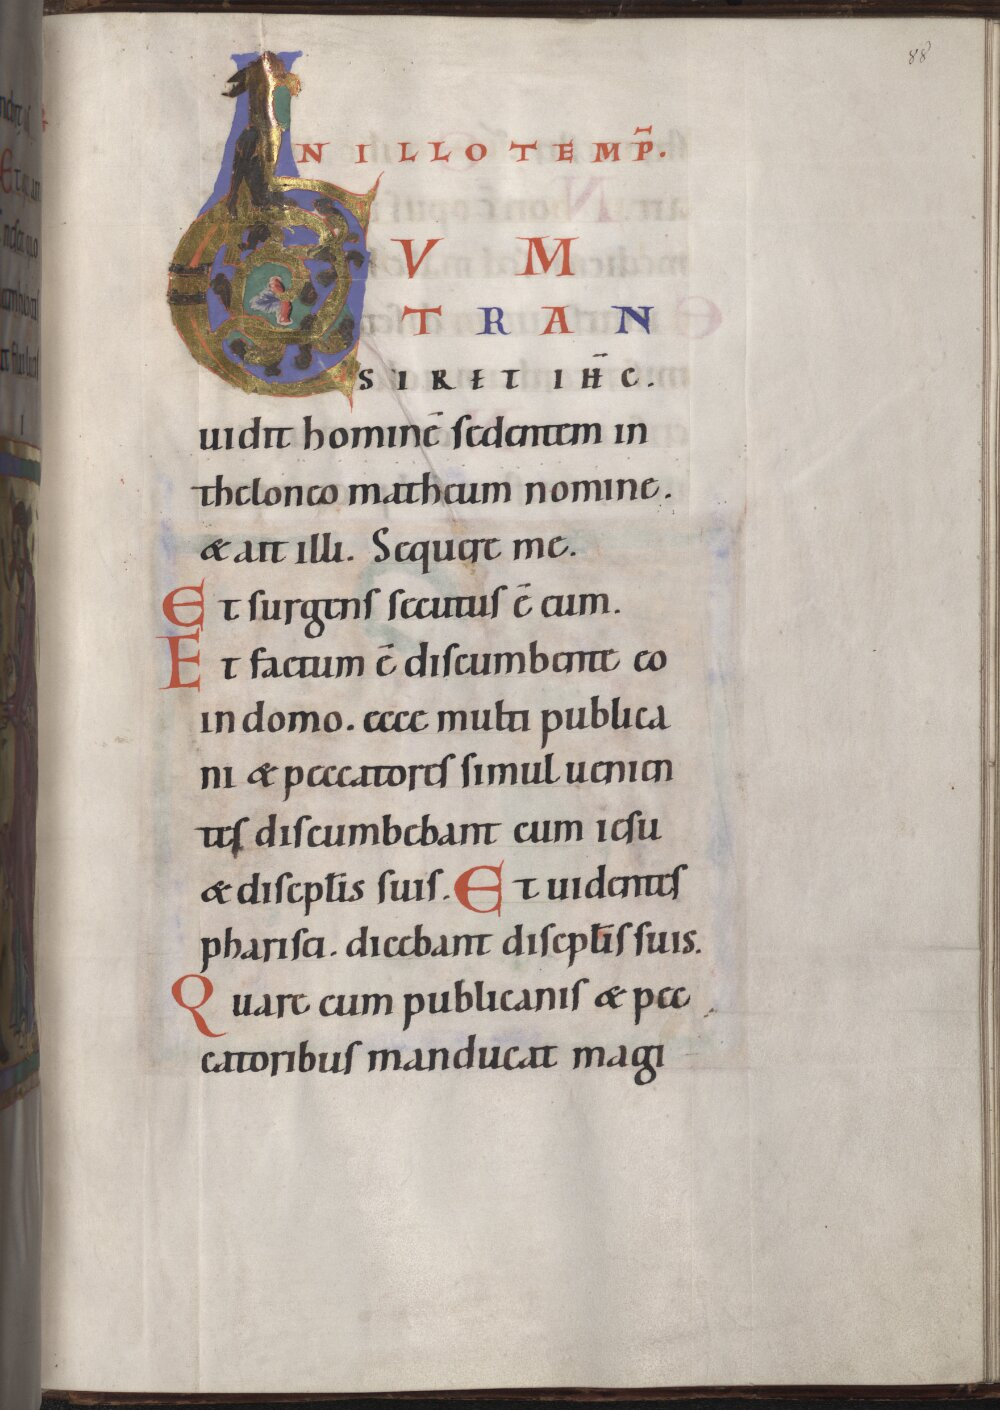 88
IN ILLO TEMP̄.
CVM
TRAN
SIRET IH̄C.
uidit hominē sedentem in
theloneo matheum nomine.
& ait illi. Sequere me.
Et surgens secutus ē eum.
Et factum ē discumbente eo
in domo. ecce multi publica
ni & peccatores simul uenien
tes discumbebant cum iesu
& discipl̄is suis. Et uidentes
pharisei. dicebant discipl̄is suis.
Quare cum publicanis & pec
catoribus manducat magi